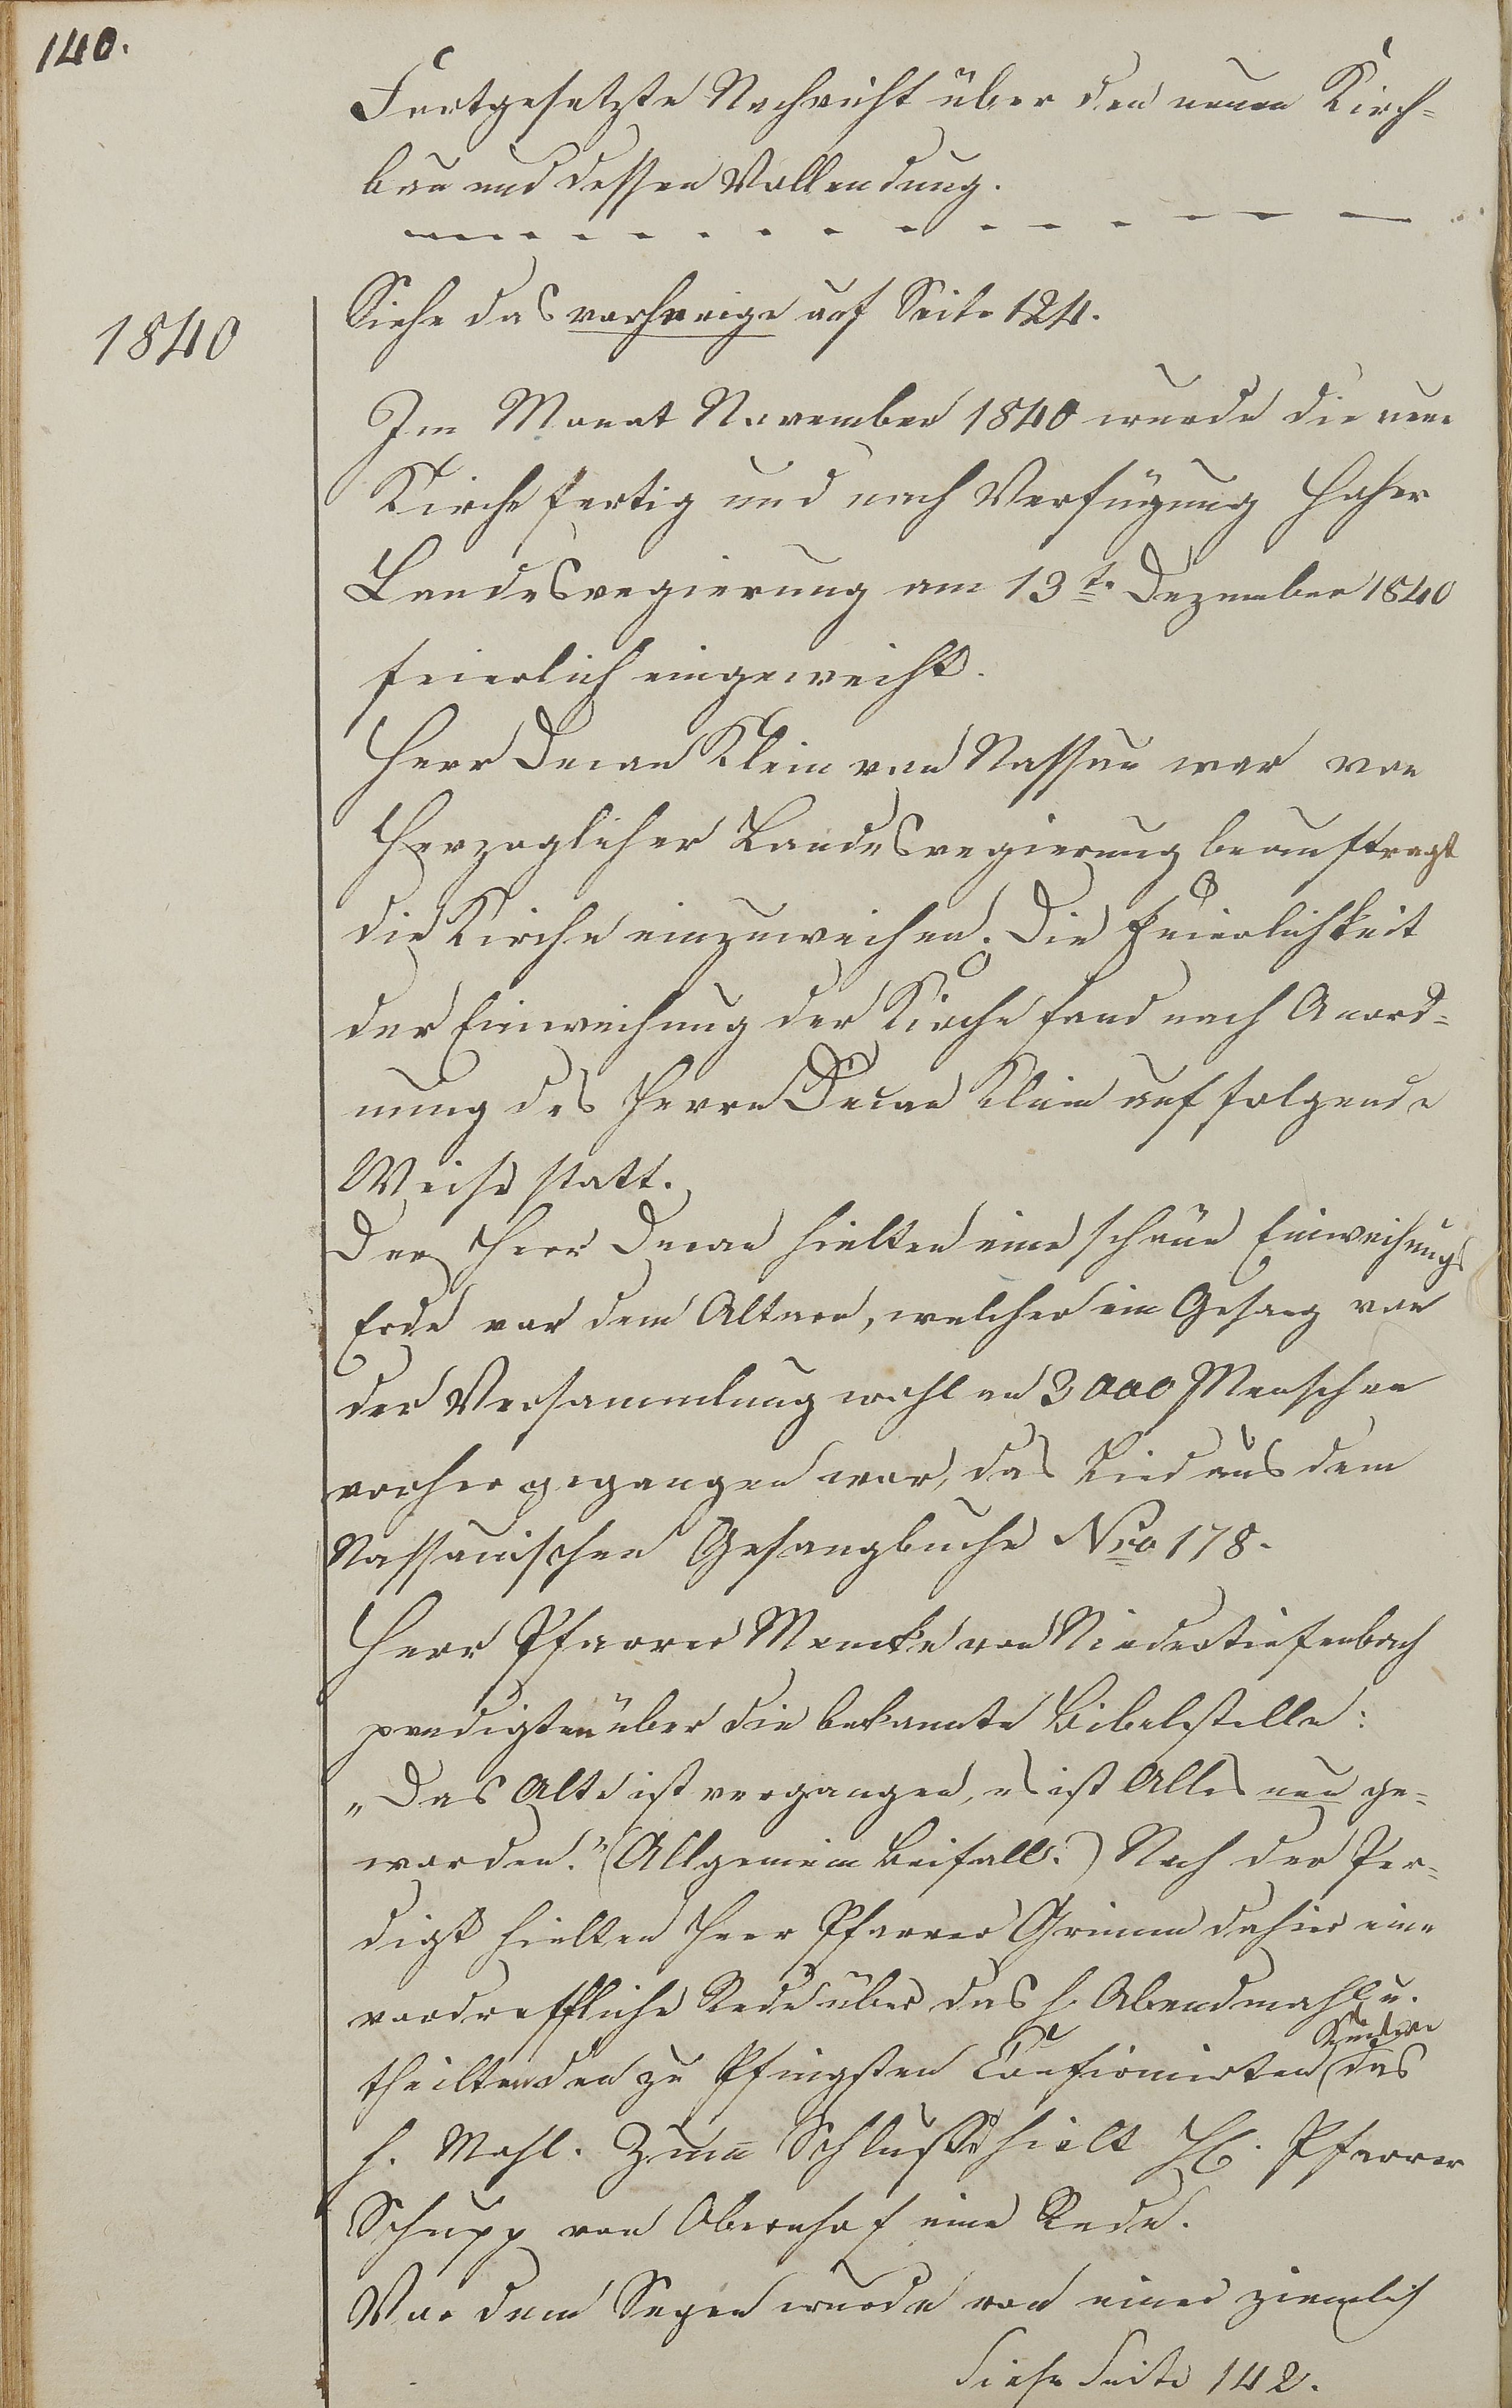 140.
Fortgesetzte Nachricht über den neuen Kirch-
bau und dessen Vollendung.
Siehe das vorherige auf Seite 124.
1840
Im Monat November 1840 wurde die neue
Kirche fertig und nach Verfügung hoher
Landesregierung am 13t. Dezember 1840
feierlich eingeweiht.
Herr Decan Klein von Nassau war von
Herzoglicher Landesregierung beauftragt
die Kirche einzuweihen. Die Feierlichkeit
der Einweihung der Kirche fand nach Anord-
nung des Herrn Decan Klein auf folgende
Weise statt.
Der Herr Decan hielten eine schöne Einweihungs
Rede vor dem Altare, welcher ein Gesang von
der Versammlung wohl an 3000 Menschen
vorher gegangen war, das Lied aus dem
Nassauischen Gesangbuche Nro 178.
Herr Pfarrer Mencke von Niedertiefenbach
predigten über die bekannte Bibelstelle:
„Das Alte ist vergangen, es ist Alles neu ge-
worden." (Allgemein Beifall.) Nach der Per-
digt hielten Herr Pfarrer Grimm dahier eine
vordreffliche Rede über das h. Abendmahl u.
theilten den zu Pfingsten Confirmirten Kindern das
h. Mahl. Zum Schlusse hielt H. Pfarrer
Schupp von Obernhof eine Rede.
Vor dem Segen wurde von einer ziemlich
Siehe Seite 142.